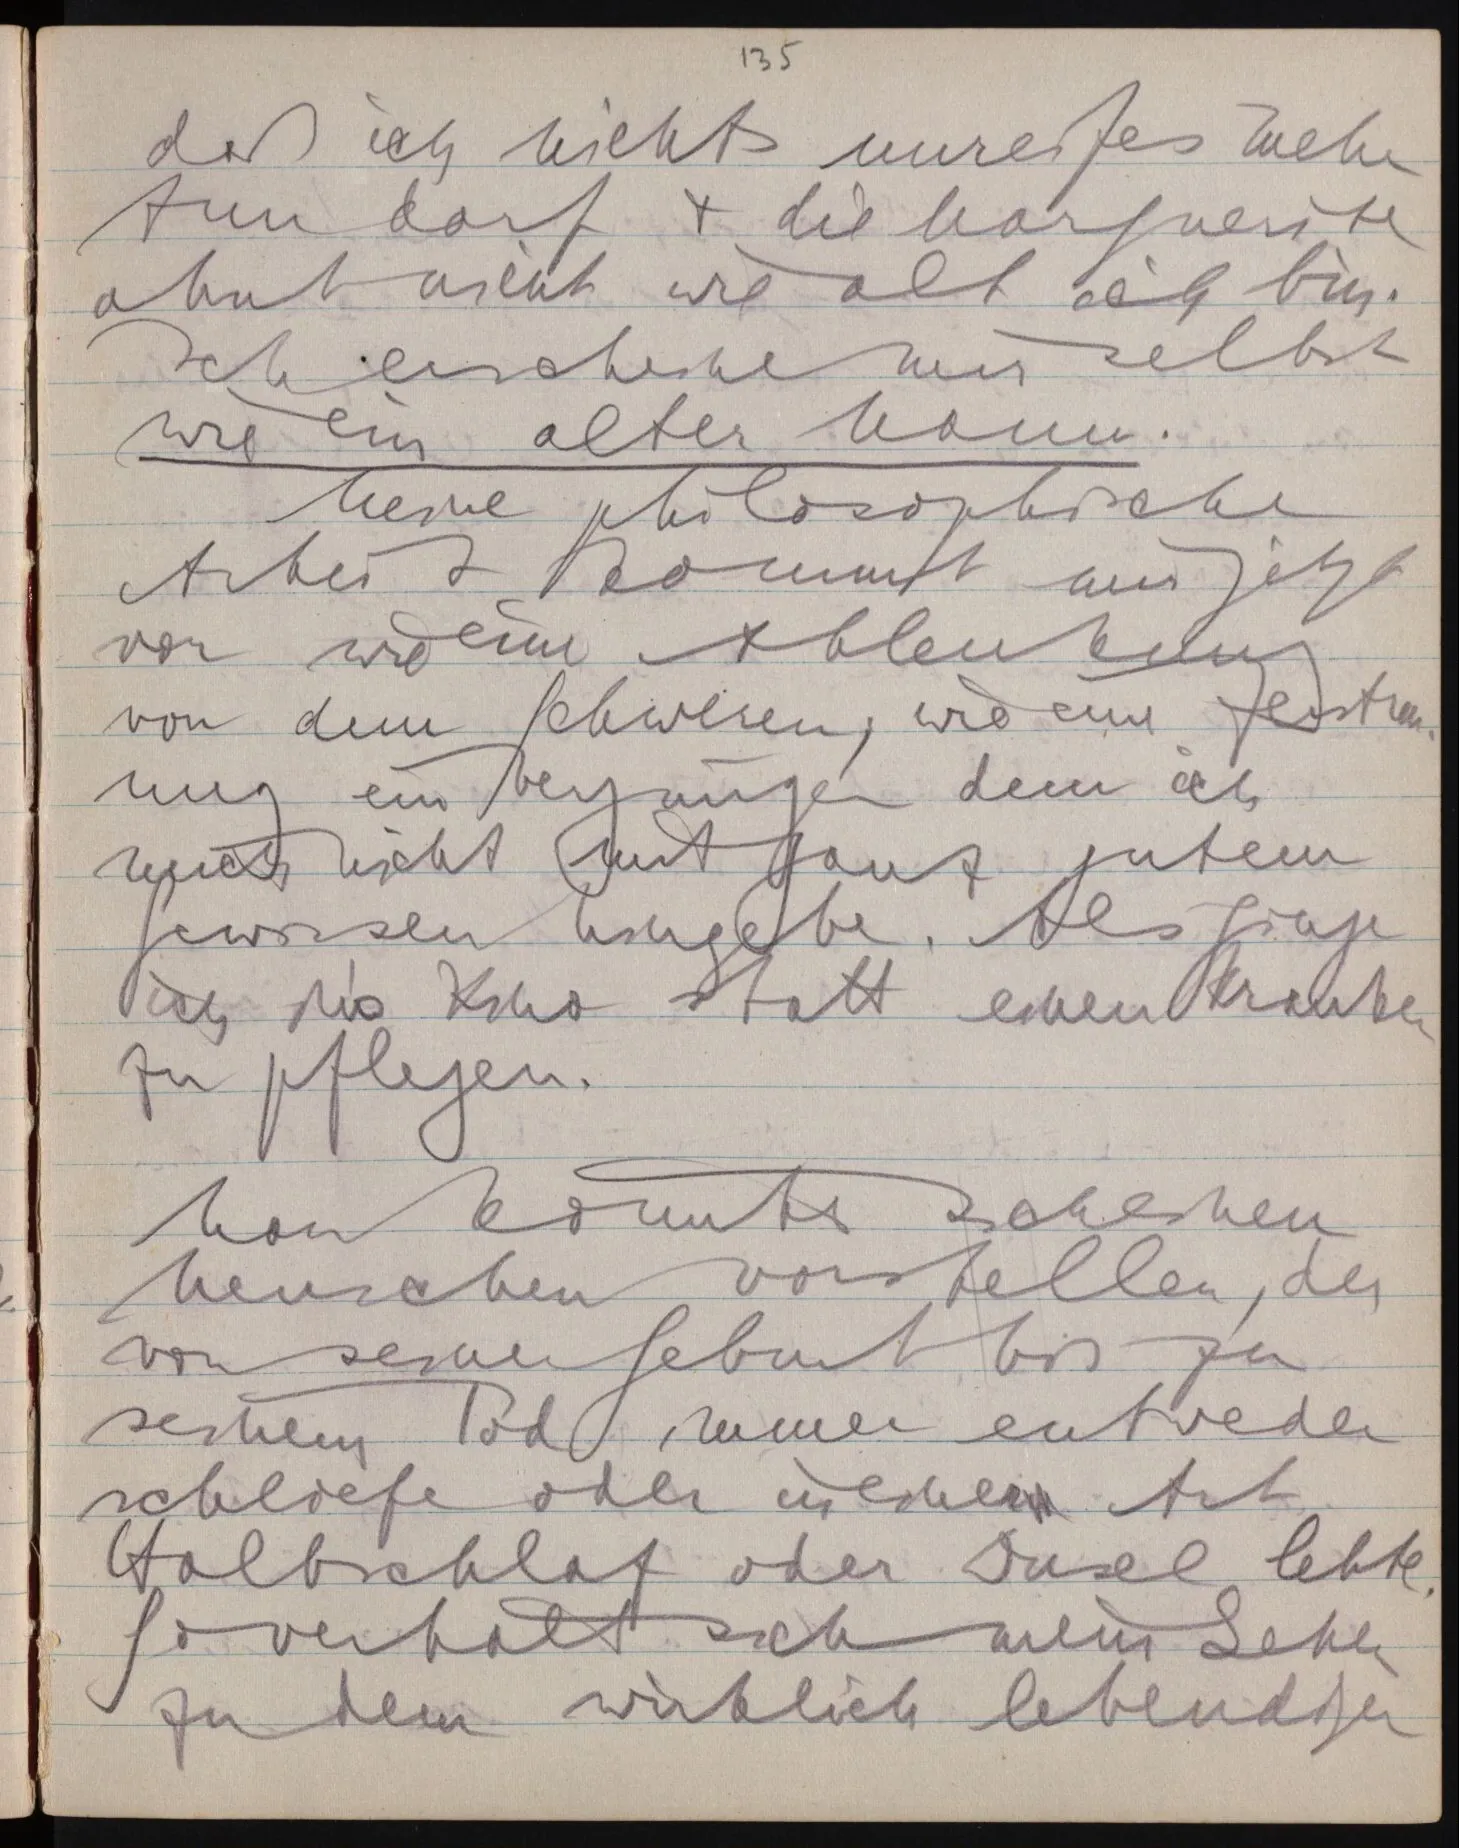 135
daß ich nichts unreifes mehr
tun darf + die Marguerite
ahnt nicht wie alt ich bin.
Ich erscheine mir selbst
wie ein alter Mann.
Meine philosophische
Arbeit kommt mir jetzt
vor wie eine Ablenkung
von dem Schweren, wie eine Zerstreu-
ung ein Vergnügen dem ich
mich nicht mit ganz gutem
Gewissen hingebe. Als ginge
ich ins Kino statt einen Kranken
zu pflegen.
Man könnte sich einen
Menschen vorstellen, der
von seiner Geburt bis zu
seinem Tod immer entweder
schliefe oder in einer Art
Halbschlaf oder Dusel lebte.
So verhält sich mein Leben
zu dem wirklich lebendiger